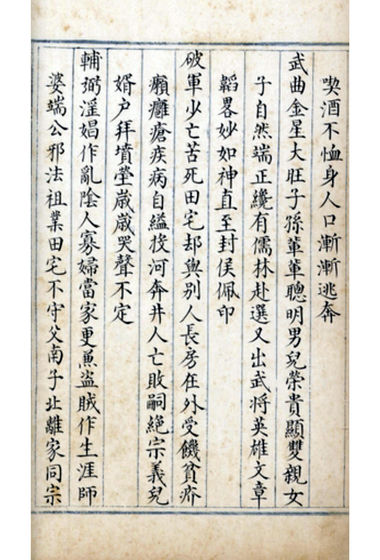 喫酒不恤身人口漸漸逃奔
武曲金星大旺子孫輩輩聰明男兒榮貴顯雙親女
子自然端正纔有儒林赴選又出武将英雄文章
韜畧妙如神直至封侯佩印
破軍少亡苦死田宅却與别人長房在外受饑貧疥
癩癰瘡疾病自縊投河奔井人亡敗嗣絶宗義兒
婿户拜墳塋嵗嵗哭聲不定
輔弼淫娼作亂陰人寡婦當家更兼盗賊作生涯師
婆端公邪法祖業田宅不守父南子北離家同宗